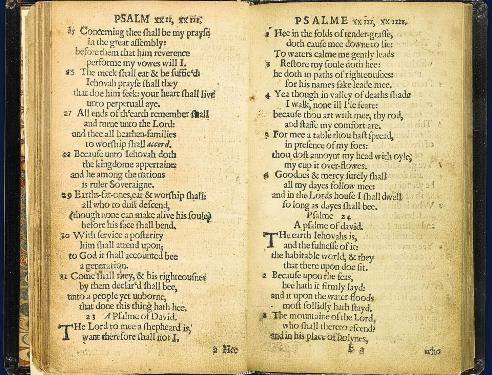 PSALM xxii, xxiii.
25 Concerning thee shall be my prayse
in the great assembly:
before them that him reverence
performe my vowes will I.
26 The meek shall eat & be suffic'd:
Iehovah prayse shall they
that doe him seek: your heart shall live
unto perpetuall aye.
27 All ends of th'earth remember shall
and turne unto the Lord:
and thee all heathen-families
to worship shall accord.
28 Because unto Iehovah doth
the kingdome appertaine:
and he among the nations
is ruler Soveraigne.
29 Earths-fat-ones, eat & worship shall:
all who to dust descend,
(though none can make alive his soule)
before his face shall bend.
30 With service a posterity
him shall attend upon;
to God it shall accounted bee
a generation.
31 Come shall they, & his righteousnes
by them declar'd shall bee,
unto a people yet unborne,
that done this thing hath hee.
23 A Psalme of David.
The Lord to mee a shepheard is,
want therefore shall not I,
2 Hee
PSALME xxiii, xxiiii.
2 Hee in the folds of tender-grasse,
doth cause mee downe to lie:
To waters calme me gently leads
3 Restore my soule doth hee:
he doth in paths of righteousnes:
for his names sake leade mee.
4 Yea though in valley of deaths shade
I walk, none ill I'le feare:
because thou art with mee, thy rod,
and staffe my comfort are.
5 For mee a table thou hast spread,
in presence of my foes:
thou dost annoynt my head with oyle,
my cup it over-flowes.
6 Goodnes & mercy surely shall
all my dayes follow mee:
and in the Lords house I shall dwell
so long as dayes shall bee.
Psalme 24
A psalme of david.
The earth Iehovahs is,
and the fulnesse of it:
the habitable world, & they
that there upon doe sit.
2 Because upon the seas,
hee hath it firmly layd:
and it upon the water-floods
most sollidly hath stayd.
3 The mountaine of the Lord,
who shall thereto ascend?
and in his place of holynes,
who